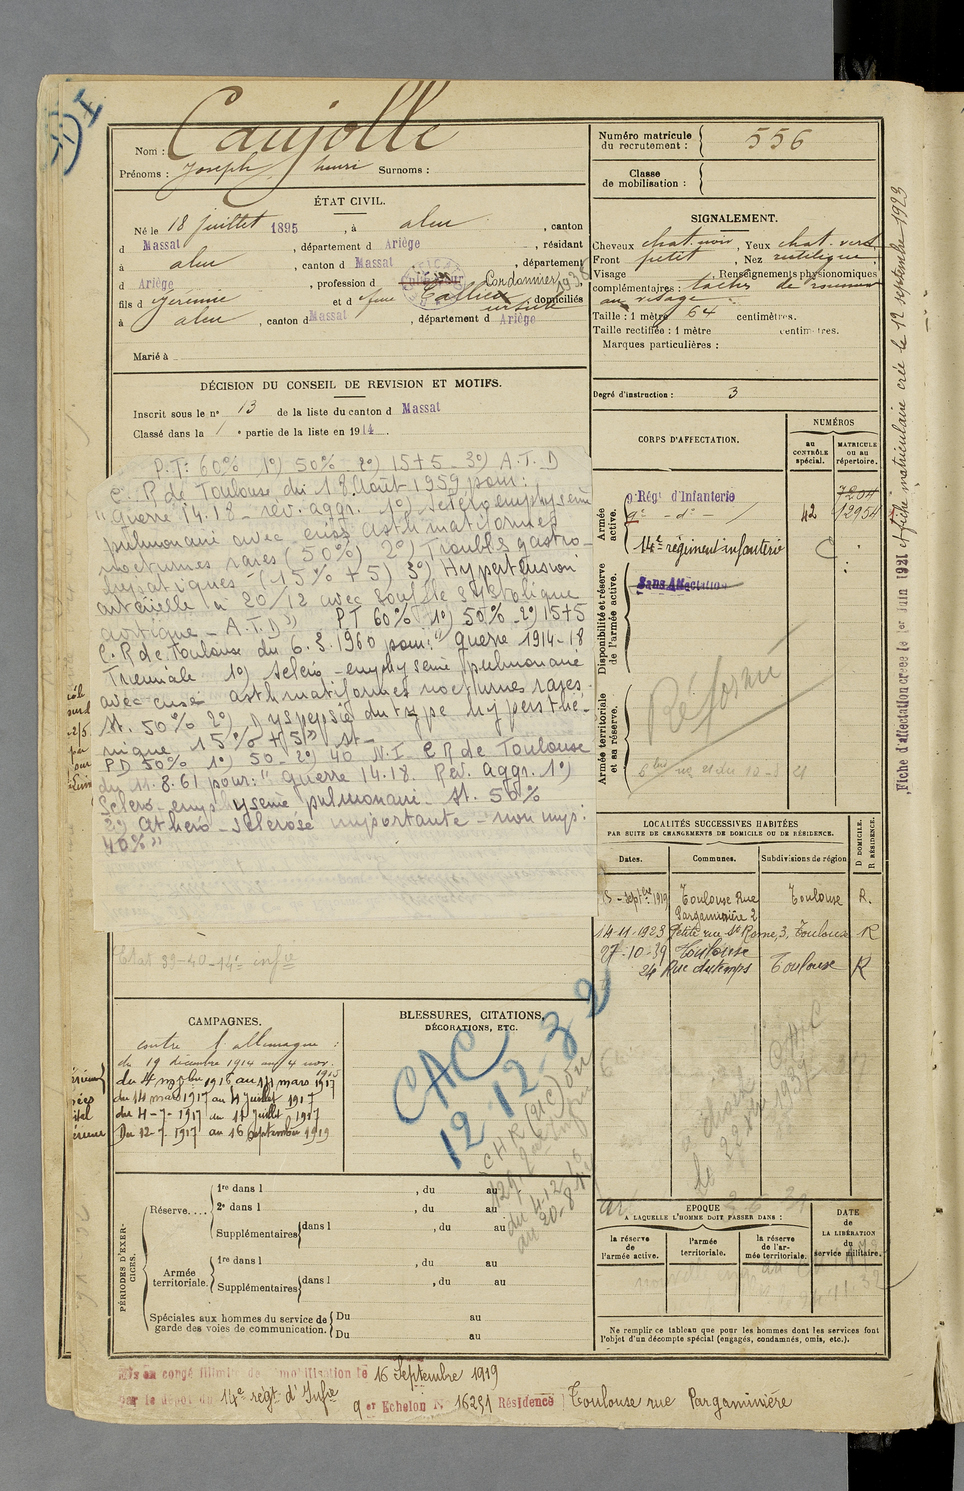 Nom : Caujolle
Prénoms : Joseph henri Surnoms :
Numéro matricule du recrutement : 556
Classe de mobilisation :
ÉTAT CIVIL.
Né le 18 juillet 1895, à aleu, canton
d Massat, département d Ariège, résidant
à aleu, canton d Massat, département
d Ariège, profession d Cordonnier
fils d et d domiciliés
à aleu, canton d Massat, département d Ariège
Marié à
SIGNALEMENT.
Cheveux chat. noir, Yeux chat. vert
Front petit, Nez rectiligne
Visage , Renseignements physionomiques
complémentaires : taches de rousseur
au visage.
Taille : 1 mètre 64 centimètres.
Taille rectifiée : 1 mètre centimètres.
Marques particulières :
Degré d'instruction : 3
DÉCISION DU CONSEIL DE REVISION ET MOTIFS.
Inscrit sous le n° 13 de la liste du canton d Massat
Classé dans la 1 e partie de la liste en 1914.
P.T: 60% 1°) 50% - 2°) 15+5 - 3°) A.T.D
C.R de Toulouse du 18 Août 1959 pour:
"Guerre 14.18 - rev. aggr. 1°) Scléro emphysème
pulmonaire avec crises asthmatiformes
nocturnes rares (50%) 2°) Troubles gastro-
hépatiques - (15% + 5) 3°) Hypertension
artérielle à 20/12 avec souffle systolique
aortique - A.T.D" P.T 60% 1°) 50% - 2°) 15+5
C.R de Toulouse du 6.3.1960 pour: "guerre 1914-18
Triennale 1°) scléro-emphysème pulmonaire
avec crises asthmatiformes nocturnes rares.
st. 50% 2°) Dyspepsie du type hypersthé-
nique 15% + 5" st -
P.D 50% 1°) 50 - 2°) 40 N.I. C.R de Toulouse
du 11.8.61 pour: "Guerre 14.18. Rev. aggr. 1°)
Scléro-emphysème pulmonaire - st. 50%
2°) Athéro-sclérose importante - non imp:
40%"
Etat 39-40-14e infie
CORPS D'AFFECTATION.
NUMÉROS
au CONTRÔLE spécial.
MATRICULE ou au répertoire.
Armée active.
9e Régt d'Infanterie 7204
9e - d° - 42 12954
14e régiment infanterie
Disponibilité et réserve de l'armée active.
Sans Affectation
Armée territoriale et sa réserve.
Réformé
LOCALITÉS SUCCESSIVES HABITÉES
PAR SUITE DE CHANGEMENTS DE DOMICILE OU DE RÉSIDENCE.
Dates. Communes. Subdivisions de région
D DOMICILE. R RÉSIDENCE.
15 - Septbre 1919 Toulouse Rue Pargaminière 2 Toulouse R.
14-11-1923 Petite rue St Rome, 3, Toulouse R
27-10-39 Toulouse
24 Rue du temps Toulouse R
CAMPAGNES.
contre l'allemagne :
du 19 décembre 1914 au 4 nov. 1915
du 4 1916 au 14 mars 1917
du 14 mars 1917 au 4 juillet 1917
du 4-7-1917 au 11 juillet 1917
Du 12-7-1917 au 16 septembre 1919
BLESSURES, CITATIONS,
DÉCORATIONS, ETC.
CAC
12-12-32
PÉRIODES D'EXERCICES.
Réserve....
1re dans l , du au
2e dans l , du au
Supplémentaires dans l , du au
Armée territoriale.
1re dans l , du au
Supplémentaires dans l , du au
Spéciales aux hommes du service de garde des voies de communication.
Du au
Du au
EPOQUE
A LAQUELLE L'HOMME DOIT PASSER DANS :
la réserve de l'armée active.
l'armée territoriale.
la réserve de l'armée territoriale.
DATE de LA LIBÉRATION du service militaire.
Ne remplir ce tableau que pour les hommes dont les services font
l'objet d'un décompte spécial (engagés, condamnés, omis, etc.).
Mis en congé illimité de démobilisation le 16 Septembre 1919
par le dépôt du 14e régt d'Infie
9 er Echelon N° 16251 Résidence Toulouse rue Pargaminière
"Fiche d'affectation créée le 1er Juin 1921 et fiche matriculaire crée le 12 septembre 1923